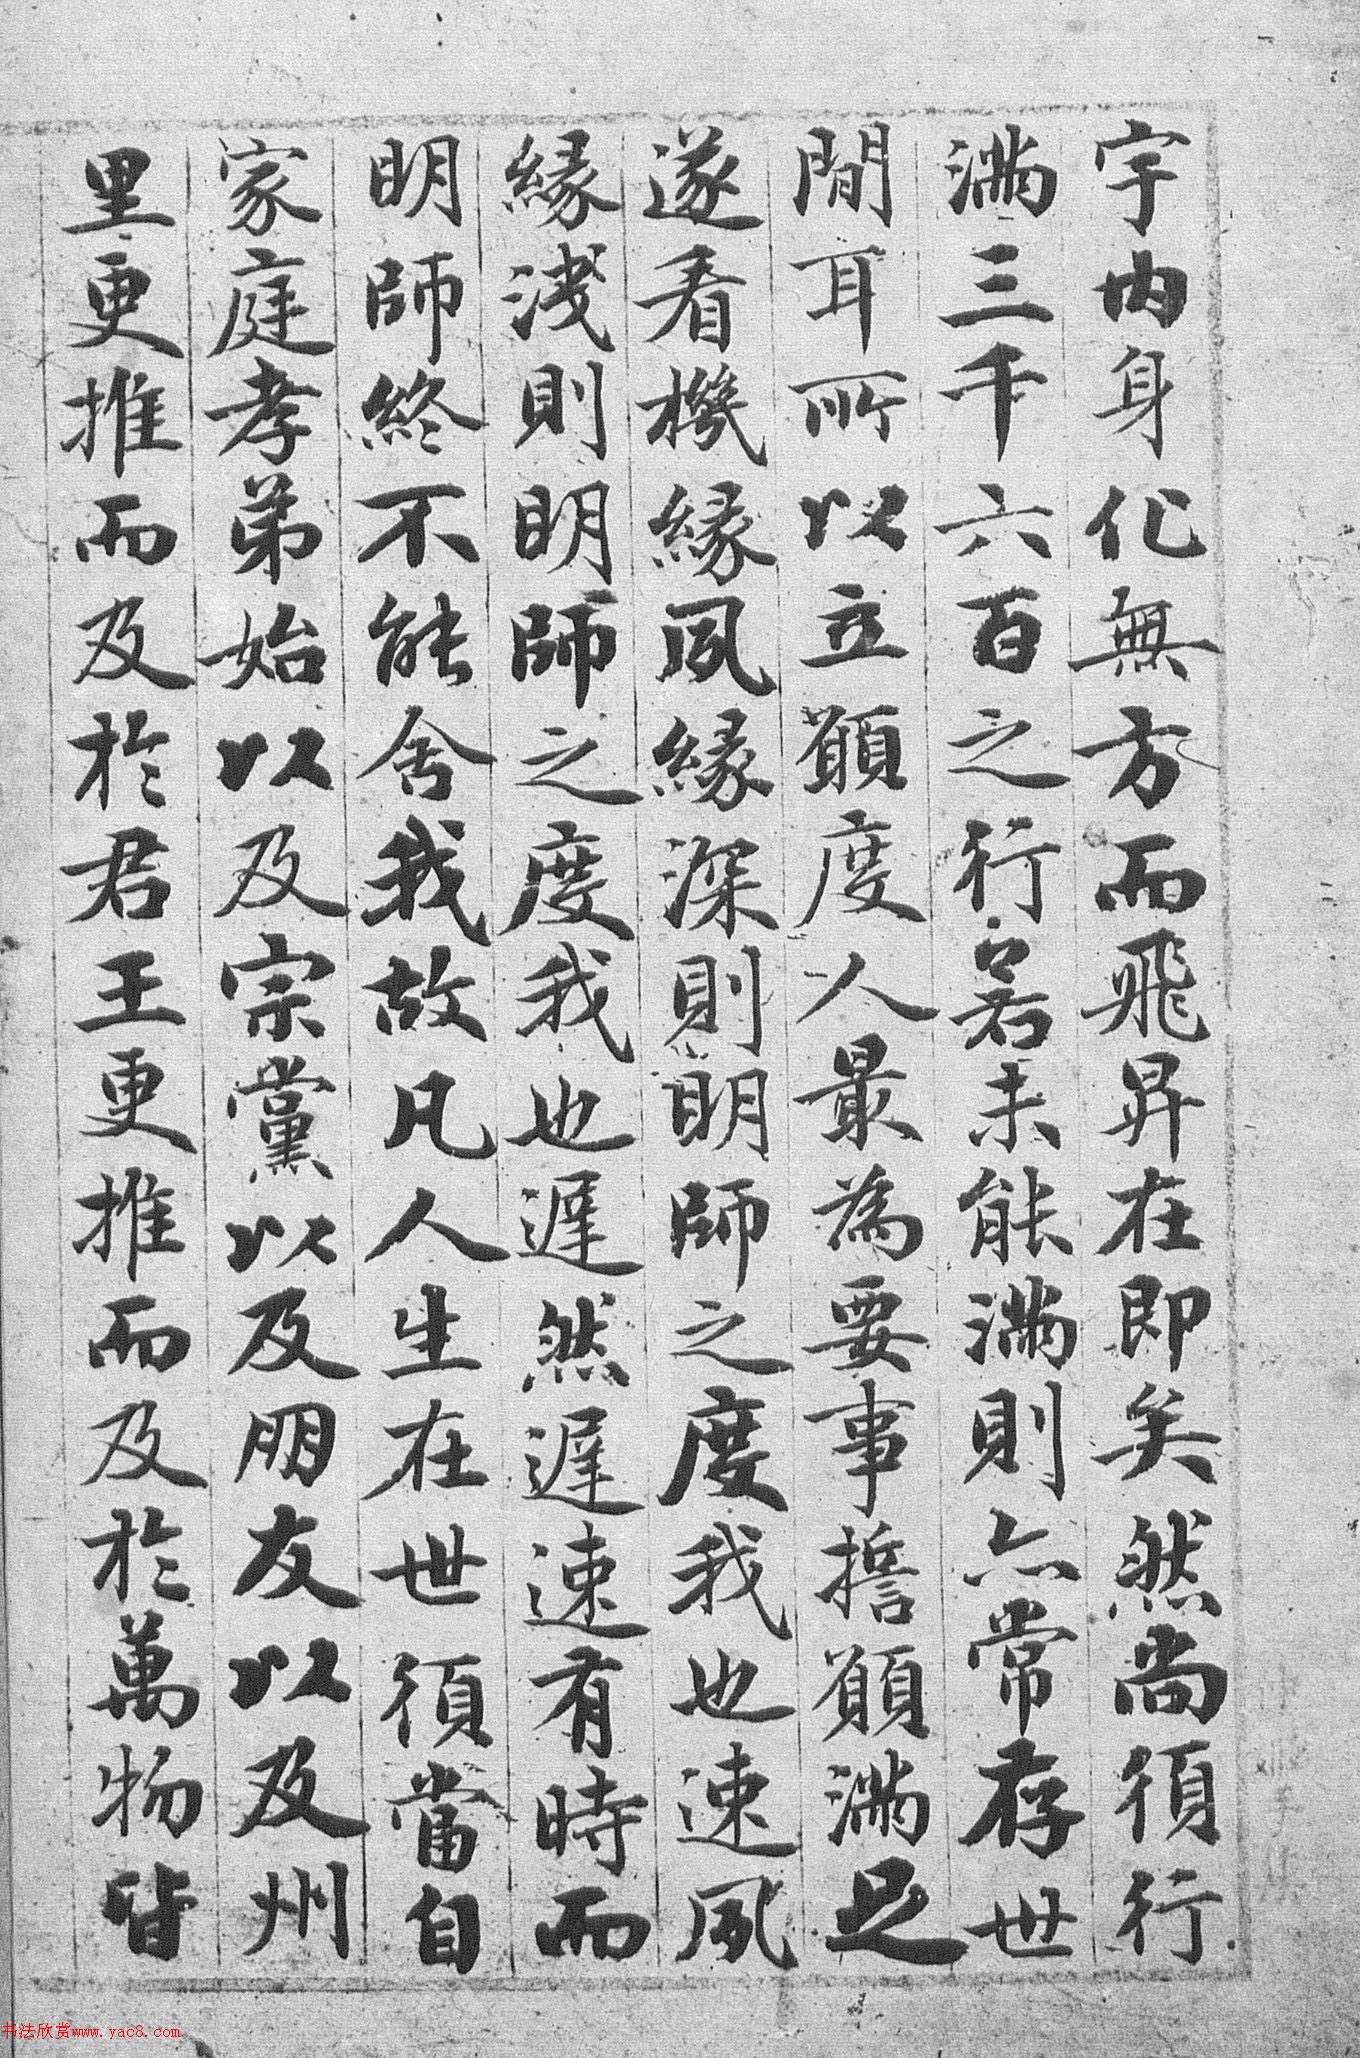 宇内身化無方而飛昇在即矣然尚須行
滿三千六百之行若未能滿則亦常存世
間耳所以立願度人最為要事誓願滿足
遂看機緣夙緣深則明師之度我也速夙
緣淺則明師之度我也遲然遲速有時而
明師終不能舍我故凡人生在世須當自
家庭孝弟始以及宗黨以及朋友以及州
里更推而及於君王更推而及於萬物皆
书法欣赏www.yac8.com